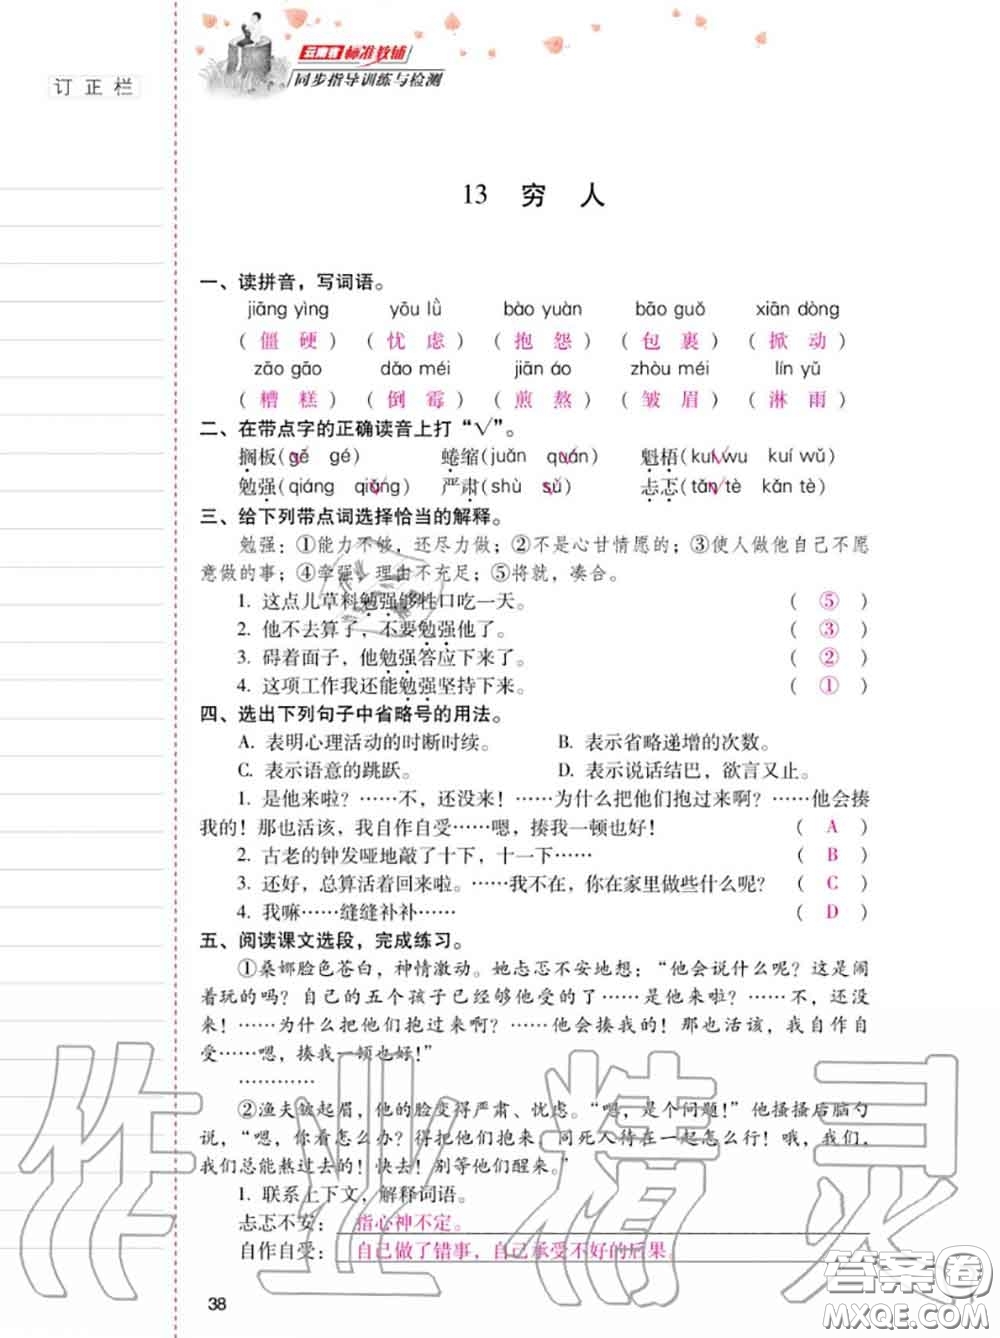 云南省标准教辅
同步指导训练与检测
订 正 栏
13 穷 人
一、读拼音，写词语。
jiāng yìng yōu lǜ bào yuàn bāo guǒ xiān dòng
( 僵 硬 ) ( 忧 虑 ) ( 抱 怨 ) ( 包 裹 ) ( 掀 动 )
zāo gāo dǎo méi jiān áo zhòu méi lín yǔ
( 糟 糕 ) ( 倒 霉 ) ( 煎 熬 ) ( 皱 眉 ) ( 淋 雨 )
二、在带点字的正确读音上打“√”。
搁板(gē gé) 蜷缩(juǎn quán) 魁梧(kuí wu kuí wǔ)
勉强(qiáng qiǎng) 严肃(shù sù) 忐忑(tǎn tè kǎn tè)
三、给下列带点词选择恰当的解释。
勉强：①能力不够，还尽力做；②不是心甘情愿的；③使人做他自己不愿
意做的事；④牵强，理由不充足；⑤将就，凑合。
1. 这点儿草料勉强够牲口吃一天。 ( ⑤ )
2. 他不去算了，不要勉强他了。 ( ③ )
3. 碍着面子，他勉强答应下来了。 ( ② )
4. 这项工作我还能勉强坚持下来。 ( ① )
四、选出下列句子中省略号的用法。
A. 表明心理活动的时断时续。 B. 表示省略递增的次数。
C. 表示语意的跳跃。 D. 表示说话结巴，欲言又止。
1. 是他来啦？……不，还没来！……为什么把他们抱过来啊？……他会揍
我的！那也活该，我自作自受……嗯，揍我一顿也好！ ( A )
2. 古老的钟发哑地敲了十下，十一下…… ( B )
3. 还好，总算活着回来啦。……我不在，你在家里做些什么呢？ ( C )
4. 我嘛……缝缝补补…… ( D )
五、阅读课文选段，完成练习。
①桑娜脸色苍白，神情激动。她忐忑不安地想：“他会说什么呢？这是闹
着玩的吗？自己的五个孩子已经够他受的了……是他来啦？……不，还没
来！……为什么把他们抱过来啊？……他会揍我的！那也活该，我自作自
受……嗯，揍我一顿也好！”
…………
②渔夫皱起眉，他的脸变得严肃、忧虑。“嗯，是个问题！”他搔搔后脑勺
说，“嗯，你看怎么办？得把他们抱来，同死人待在一起怎么行！哦，我们，
我们总能熬过去的！快去！别等他们醒来。”
1. 联系上下文，解释词语。
忐忑不安：指心神不定。
自作自受：自己做了错事，自己承受不好的后果。
38
作业精灵
答案圈
MXQE.COM